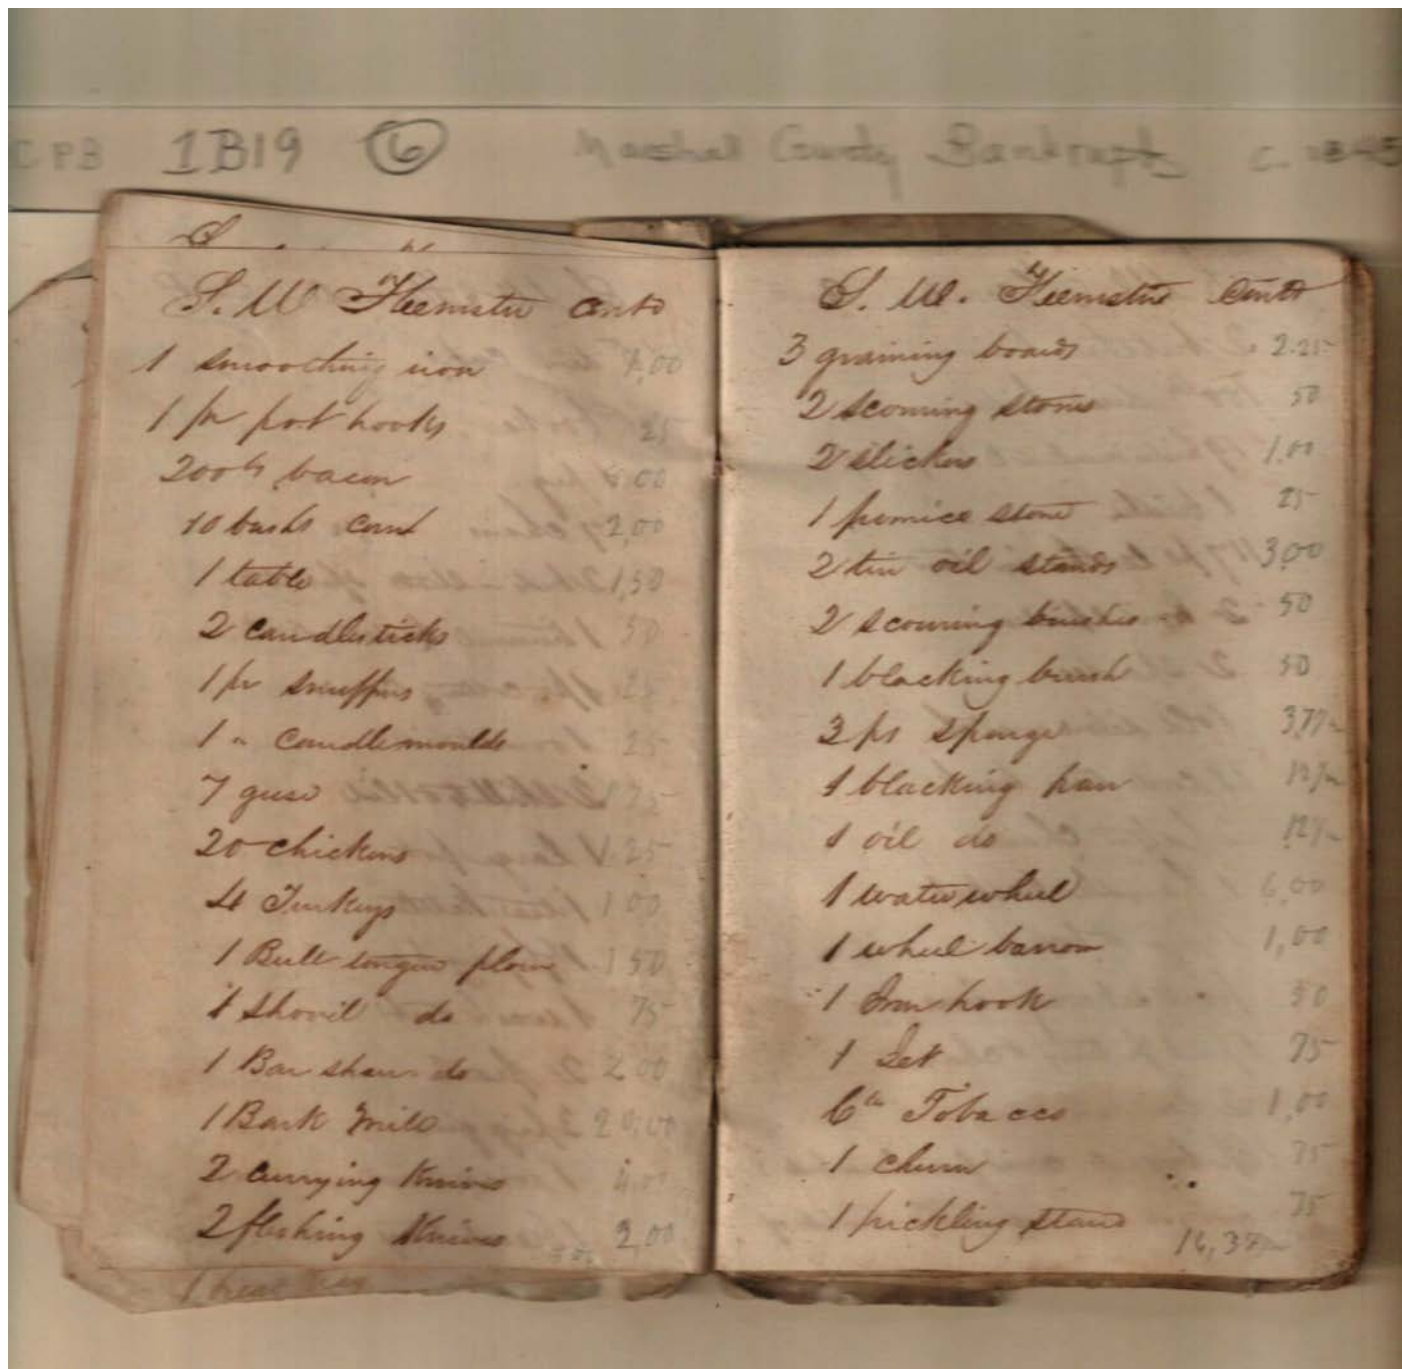 CPB 1B19 6 Marshal County Bankrupts C. 1845
S. W Heemstre Contd
1 smoothing iron
1 pr pot hooks 25
200 lb bacon 8 00
10 bushs corn 2,00
1 table 1,50
2 candlesticks 50
1 pr snuffers 25
1 " candlemoulds 25
7 geese
20 chickens 1.25
4 Turkeys 1 00
1 Bull tongue plow 1 50
1 shovil do 75
1 Bar shear do 2 00
1 Bark Mill 20,00
2 currying knives 4,00
2 fleshing knives 2,00
S. W. Heemstre Contd
3 graining boards 2.25
2 scouring stones 50
2 slickers 1,00
1 pumice stone 25
2 tin oil stands 3,00
2 scouring brushes 50
1 blacking brush 50
3 ps sponge
1 blacking pan 12½
1 oil do 12½
1 water wheel 6,00
1 wheel barrow 1,00
1 Iron hook 50
1 Set 75
6 lb Tobacco 1,00
1 churn 75
1 pickling stand 75